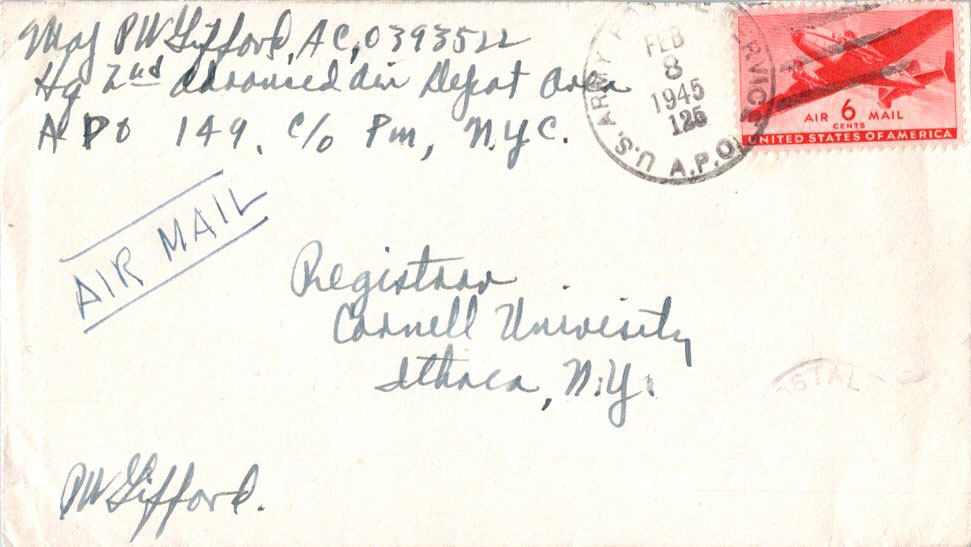 Maj PW Gifford, AC, O393522
Hq 2nd Advanced Air Depot Area
APO 149. c/o Pm, N.Y.C.
U.S. ARMY
A.P.O.
FEB
8
1945
125
AIR 6 MAIL
CENTS
UNITED STATES OF AMERICA
AIR MAIL
Registrar
Cornell University
Ithaca, N.Y.
PW Gifford.